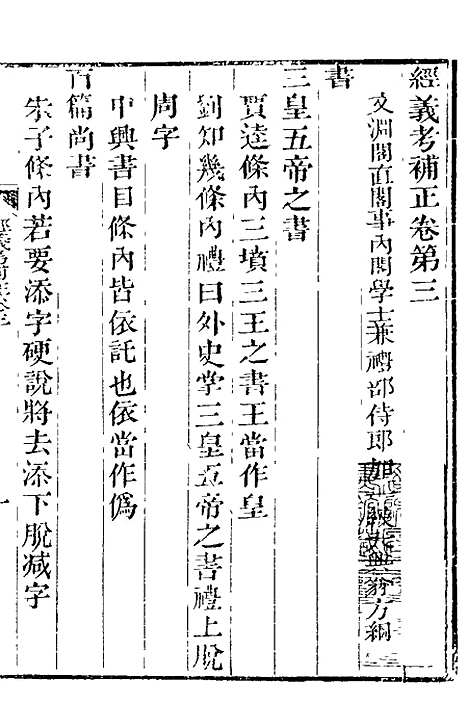 經義考補正卷第三
文淵閣直閣事內閣學士兼禮部侍郎加一級大興翁方綱
書
三皇五帝之書
賈逵條內三墳三王之書王當作皇
劉知幾條內禮曰外史掌三皇五帝之書禮上脫
周字
中興書目條內皆依託也依當作爲
百篇尚書
朱子條內若要添字硬說將去添下脫减字